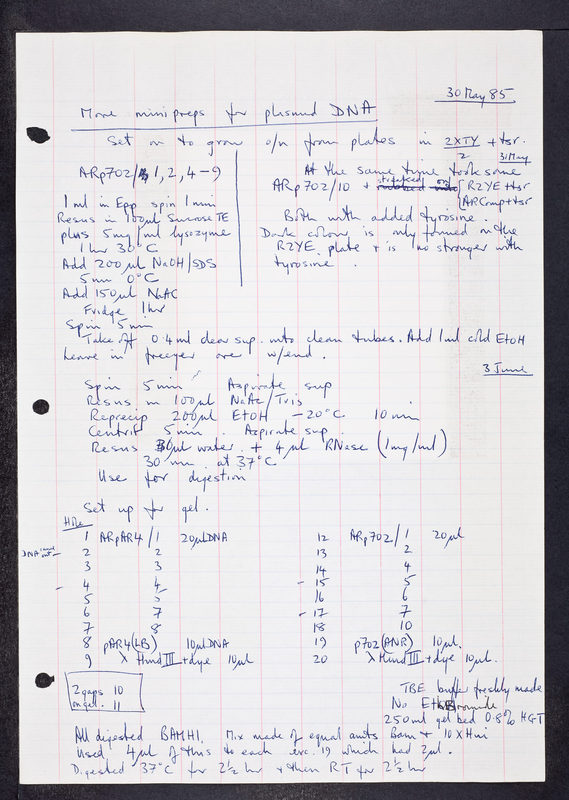 30 May 85
More minipreps for plasmid DNA
Set on to grow o/n from plates in 2XTY + tsr.
2
31 May
ARp702/ 1, 2, 4-9
1 ml in Epp spin 1 min
Resus in 100µl Sucrose TE
plus 5mg/ml lysozyme
1 hr 30°C
Add 200µl NaOH/SDS
5 min 0°C
Add 150µl NaAC
Fridge 1hr
Spin 5 min
At the same time took some
ARp702/10 + streaked on R2YE + tsr
ARCmp + tsr
Both with added tyrosine.
Dark colour is only formed on the
R2YE plate + is no stronger with
tyrosine.
Take off 0.4ml clear sup. into clean tubes. Add 1ml cold EtOH
Leave in freezer over w/end.
3 June
Spin 5 min Aspirate sup
Resus in 100µl NaAc/Tris
Reprecip 200µl EtOH -20°C 10 min
Centrif 5 min Aspirate sup.
Resus 30µl water + 4µl RNase (1mg/ml)
30 min at 37°C
Use for digestion
Set up for gel.
Hole
1 ARpAR4/1 20µl DNA
2 2
3 3
4 4
5 5
6 7
7 8
8 pAR4(LB) 10µl DNA
9 λ Hind III + dye 10µl
12 ARp702/1 20µl
13 2
14 4
15 5
16 6
17 7
18 10
19 p702(ANR) 10µl.
20 λ Hind III + dye 10µl.
DNA
2 gaps 10
on gel. 11
TBE buffer freshly made
No Eth Bromide
250ml gel bed 0.8% HGT
All digested BAMHI. Mix made of equal amts Bam + 10 X Hni
Used 4µl of this to each exc. 19 which had 2µl.
Digested 37°C for 2½ hr + then RT for 2½ hr